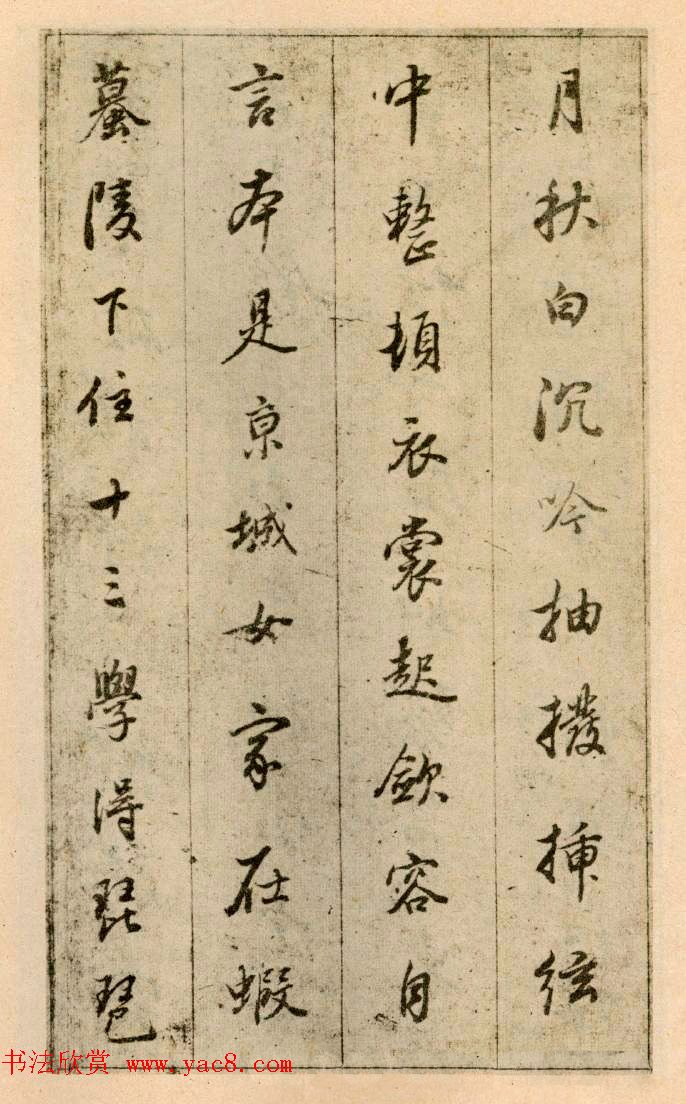 月秋白沉吟抽撥揷絃
中整頓衣裳起斂容自
言本是京城女家在蝦
蟇陵下住十三學得琵琶
书法欣赏 www.yac8.com